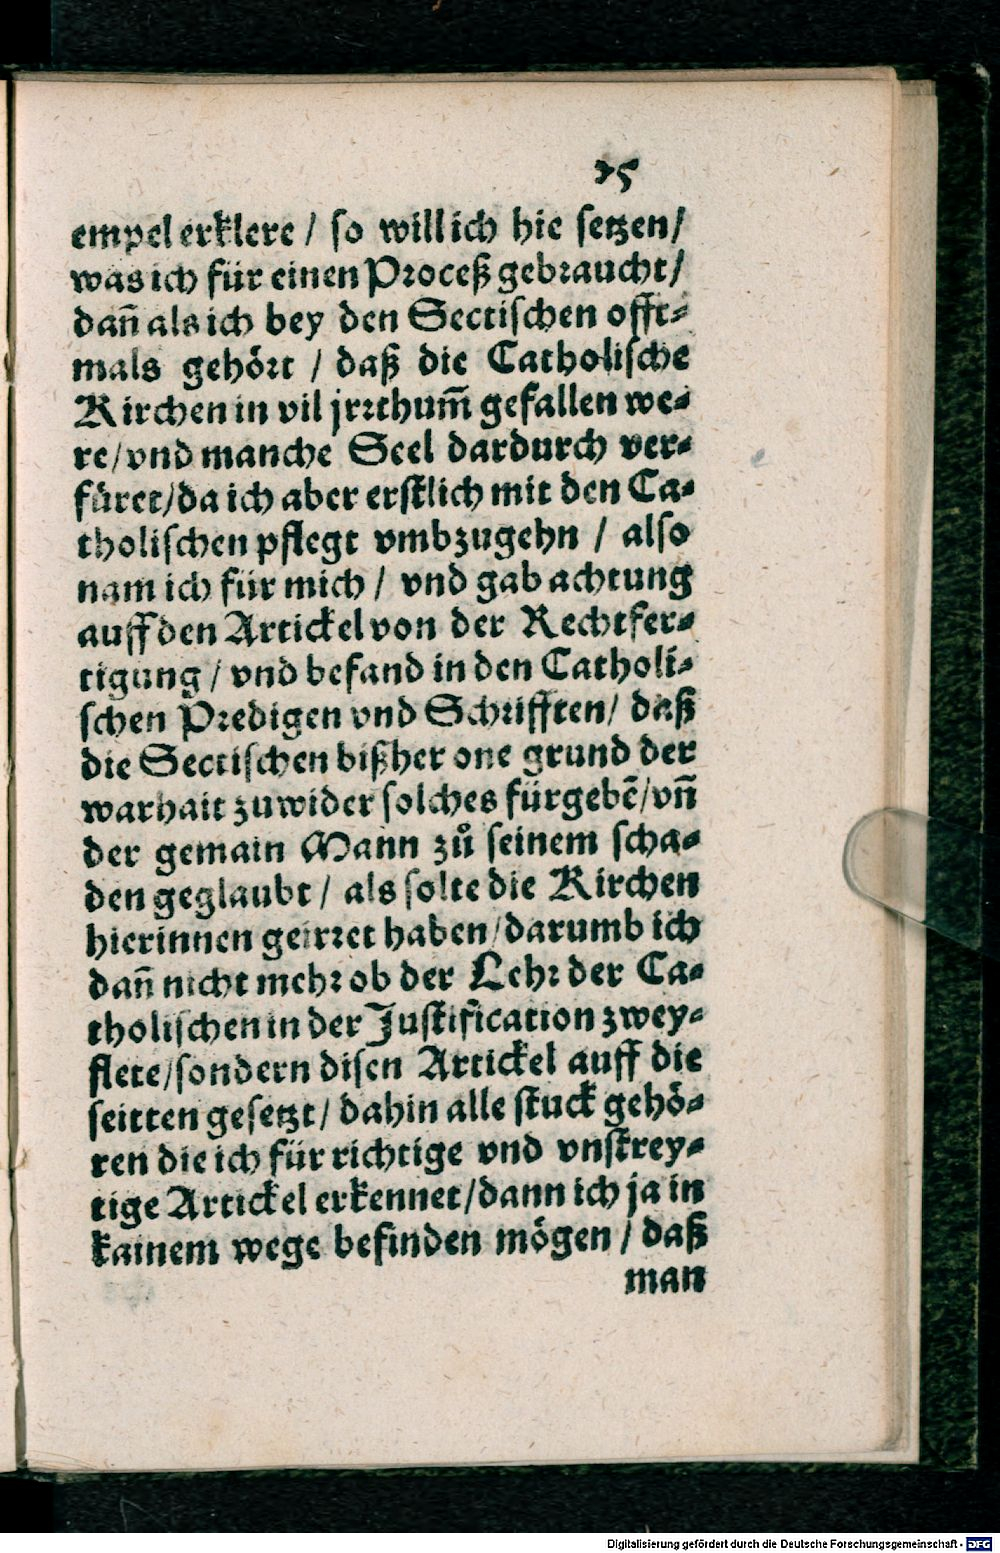 25
empel erklere / so will ich hie setzen /
was ich für einen Proceß gebraucht /
dañ als ich bey den Sectischen offt-
mals gehört / daß die Catholische
Kirchen in vil jrrthum̃ gefallen we-
re / vnd manche Seel dardurch ver-
füret / da ich aber erstlich mit den Ca-
tholischen pflegt vmbzugehn / also
nam ich für mich / vnd gab achtung
auff den Artickel von der Rechtfer-
tigung / vnd befand in den Catholi-
schen Predigen vnd Schrifften / daß
die Sectischen bißher one grund der
warhait zuwider solches fürgebẽ / vñ
der gemain Mann zů seinem scha-
den geglaubt / als solte die Kirchen
hierinnen geirret haben / darumb ich
dañ nicht mehr ob der Lehr der Ca-
tholischen in der Justification zwey-
flete / sondern disen Artickel auff die
seitten gesetzt / dahin alle stuck gehö-
ren die ich für richtige vnd vnstrey-
tige Artickel erkennet / dann ich ja in
kainem wege befinden mögen / daß
man
Digitalisierung gefördert durch die Deutsche Forschungsgemeinschaft - DFG